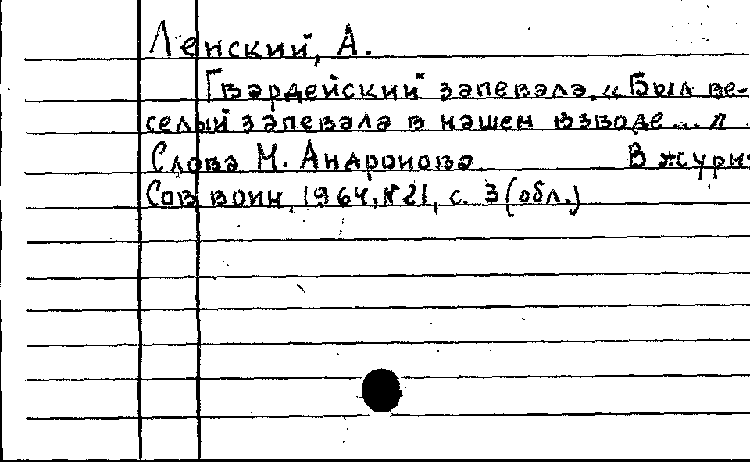 Ленский, А.
Гвардейский запевала. „Был ве-
селый запевала в нашем взводе..."
Слова М. Андронова В журн:
Сов воин, 1964, №21, с. 3 (обл.)